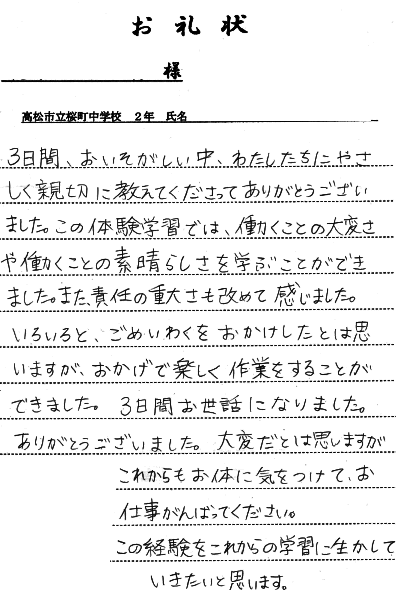 お礼状
様
高松市立桜町中学校 2年 氏名
3日間、おいそがしい中、わたしたちにやさ
しく親切に教えてくださってありがとうござい
ました。この体験学習では、働くことの大変さ
や働くことの素晴らしさを学ぶことができ
ました。また、責任の重大さも改めて感じました。
いろいろと、ごめいわくをおかけしたとは思
いますが、おかげで楽しく作業をすることが
できました。3日間お世話になりました。
ありがとうございました。大変だとは思しますが
これからもお体に気をつけて、お
仕事がんばってください。
この経験をこれからの学習に生かして
いきたいと思います。